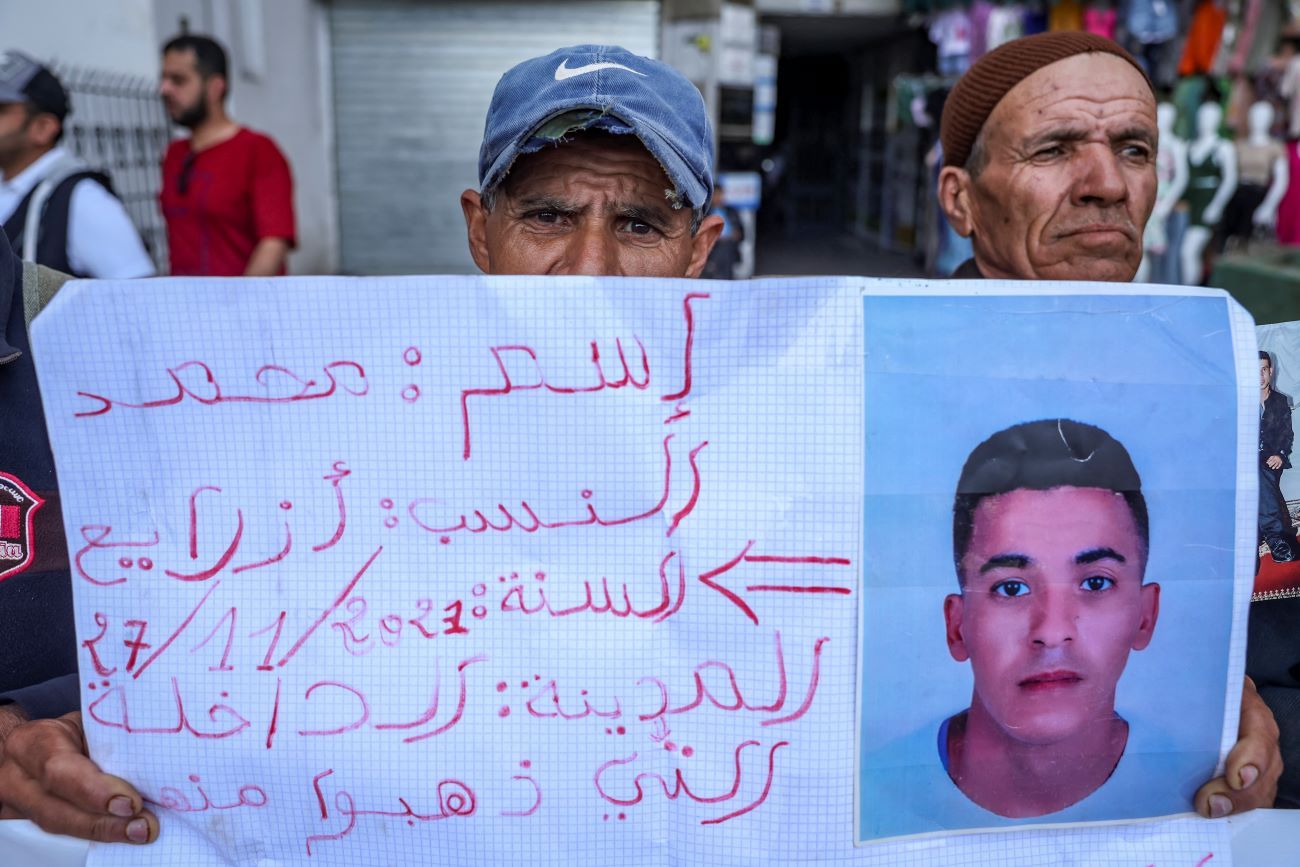 إسم : محمد
النسب : أزرايع
السنة : 27/11/2021
المدينة : الداخلة
التي ذهبوا منها